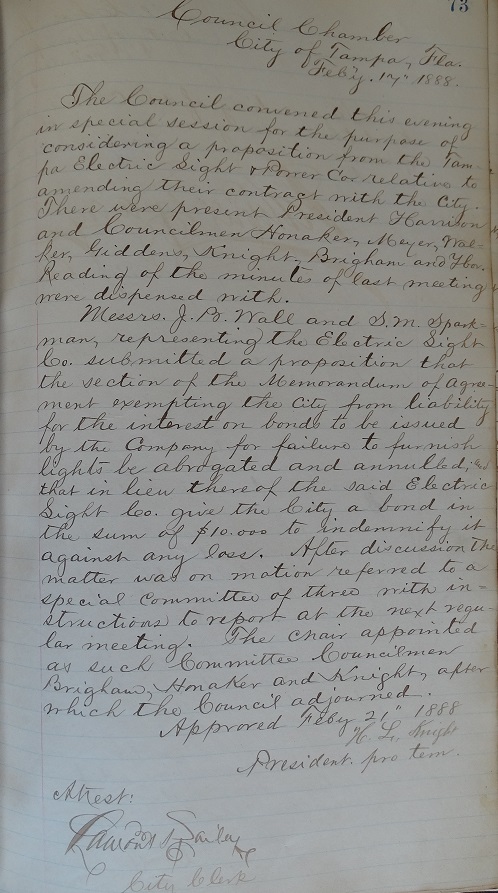 73
Council Chamber
City of Tampa, Fla.
Feb'y. 17" 1888.
The Council convened this evening
in special session for the purpose of
considering a proposition from the Tam-
pa Electric Light & Power Co. relative to
amending their contract with the City.
There were present President Harrison
and Councilmen Honaker, Meyer, Wal-
ker, Giddens, Knight, Brigham and Ybor.
Reading of the minutes of last meeting
were dispensed with.
Messrs. J. B. Wall and S. M. Spark-
man, representing the Electric Light
Co. submitted a proposition that
the section of the Memorandum of agree-
ment exempting the City from liability
for the interest on bonds to be issued
by the Company for failure to furnish
lights be abrogated and annulled; and
that in lieu thereof the said Electric
Light Co. give the City a bond in
the sum of $10.000 to indemnify it
against any loss. After discussion the
matter was on motion referred to a
special committee of three with in-
structions to report at the next regu-
lar meeting. The chair appointed
as such Committee Councilmen
Brigham, Honaker and Knight, after
which the Council adjourned.
Approved Feby 21" 1888
H. L. Knight
President. pro tem.
Attest:
City Clerk